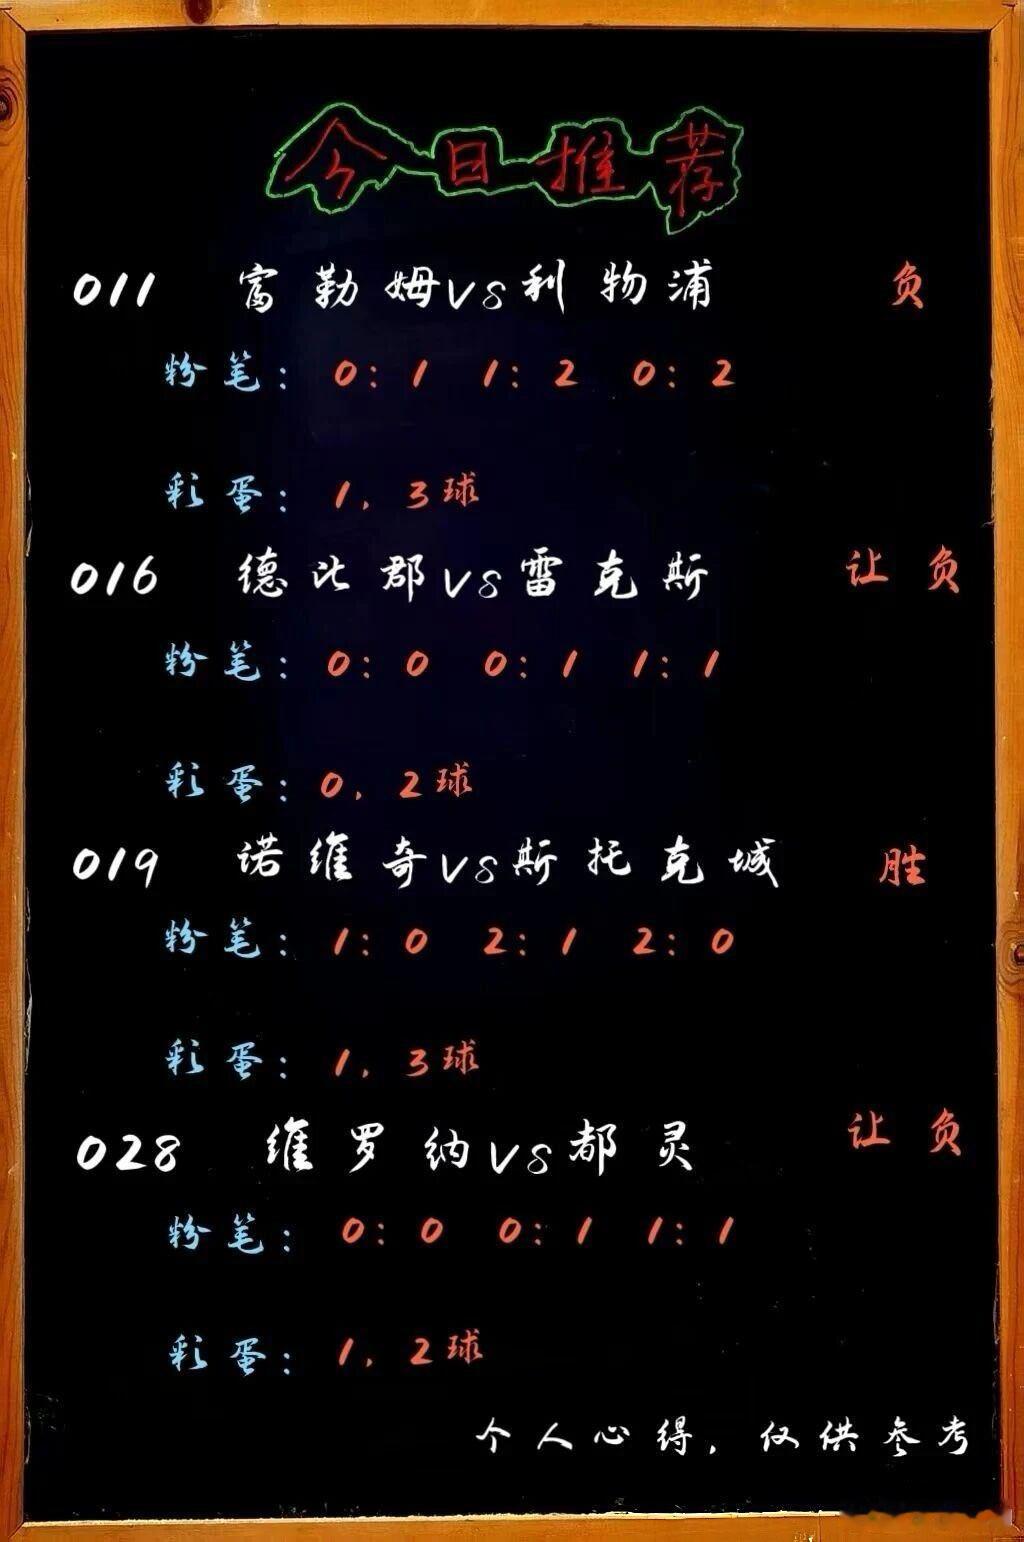 今日推荐
011 富勒姆VS利物浦 负
粉笔：0:1 1:2 0:2
彩蛋：1，3球
016 德比郡VS雷克斯 让负
粉笔：0:0 0:1 1:1
彩蛋：0，2球
019 诺维奇VS斯托克城 胜
粉笔：1:0 2:1 2:0
彩蛋：1，3球
028 维罗纳VS都灵 让负
粉笔：0:0 0:1 1:1
彩蛋：1，2球
个人心得，仅供参考